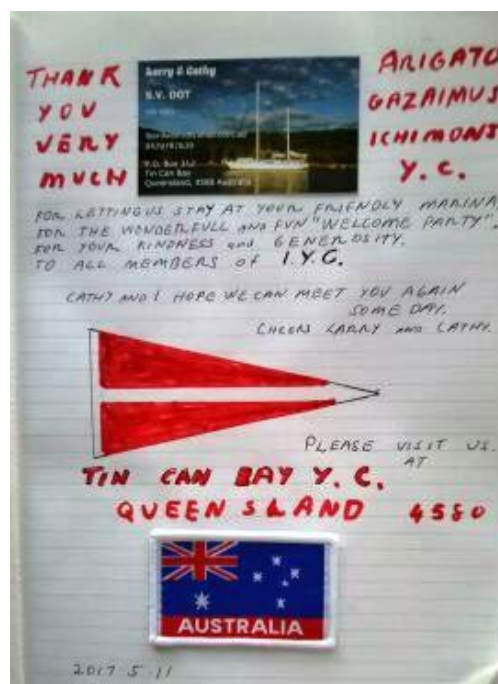 THANK
YOU
VERY
MUCH
Larry & Cathy
S.V. DOT
P.O. Box
Tin Can Bay
Queensland, 4580 Australia
ARIGATO
GAZAIMUS
ICHIMONJI
Y.C.
FOR LETTING US STAY AT YOUR FRIENDLY MARINA,
FOR THE WONDERFULL AND FUN "WELCOME PARTY".
FOR YOUR KINDNESS and GENEROSITY.
TO ALL MEMBERS of I.Y.C.
CATHY AND I HOPE WE CAN MEET YOU AGAIN
SOME DAY.
CHEERS LARRY AND CATHY.
PLEASE VISIT US.
AT
TIN CAN BAY Y.C.
QUEENSLAND 4580
AUSTRALIA
2017 5.11